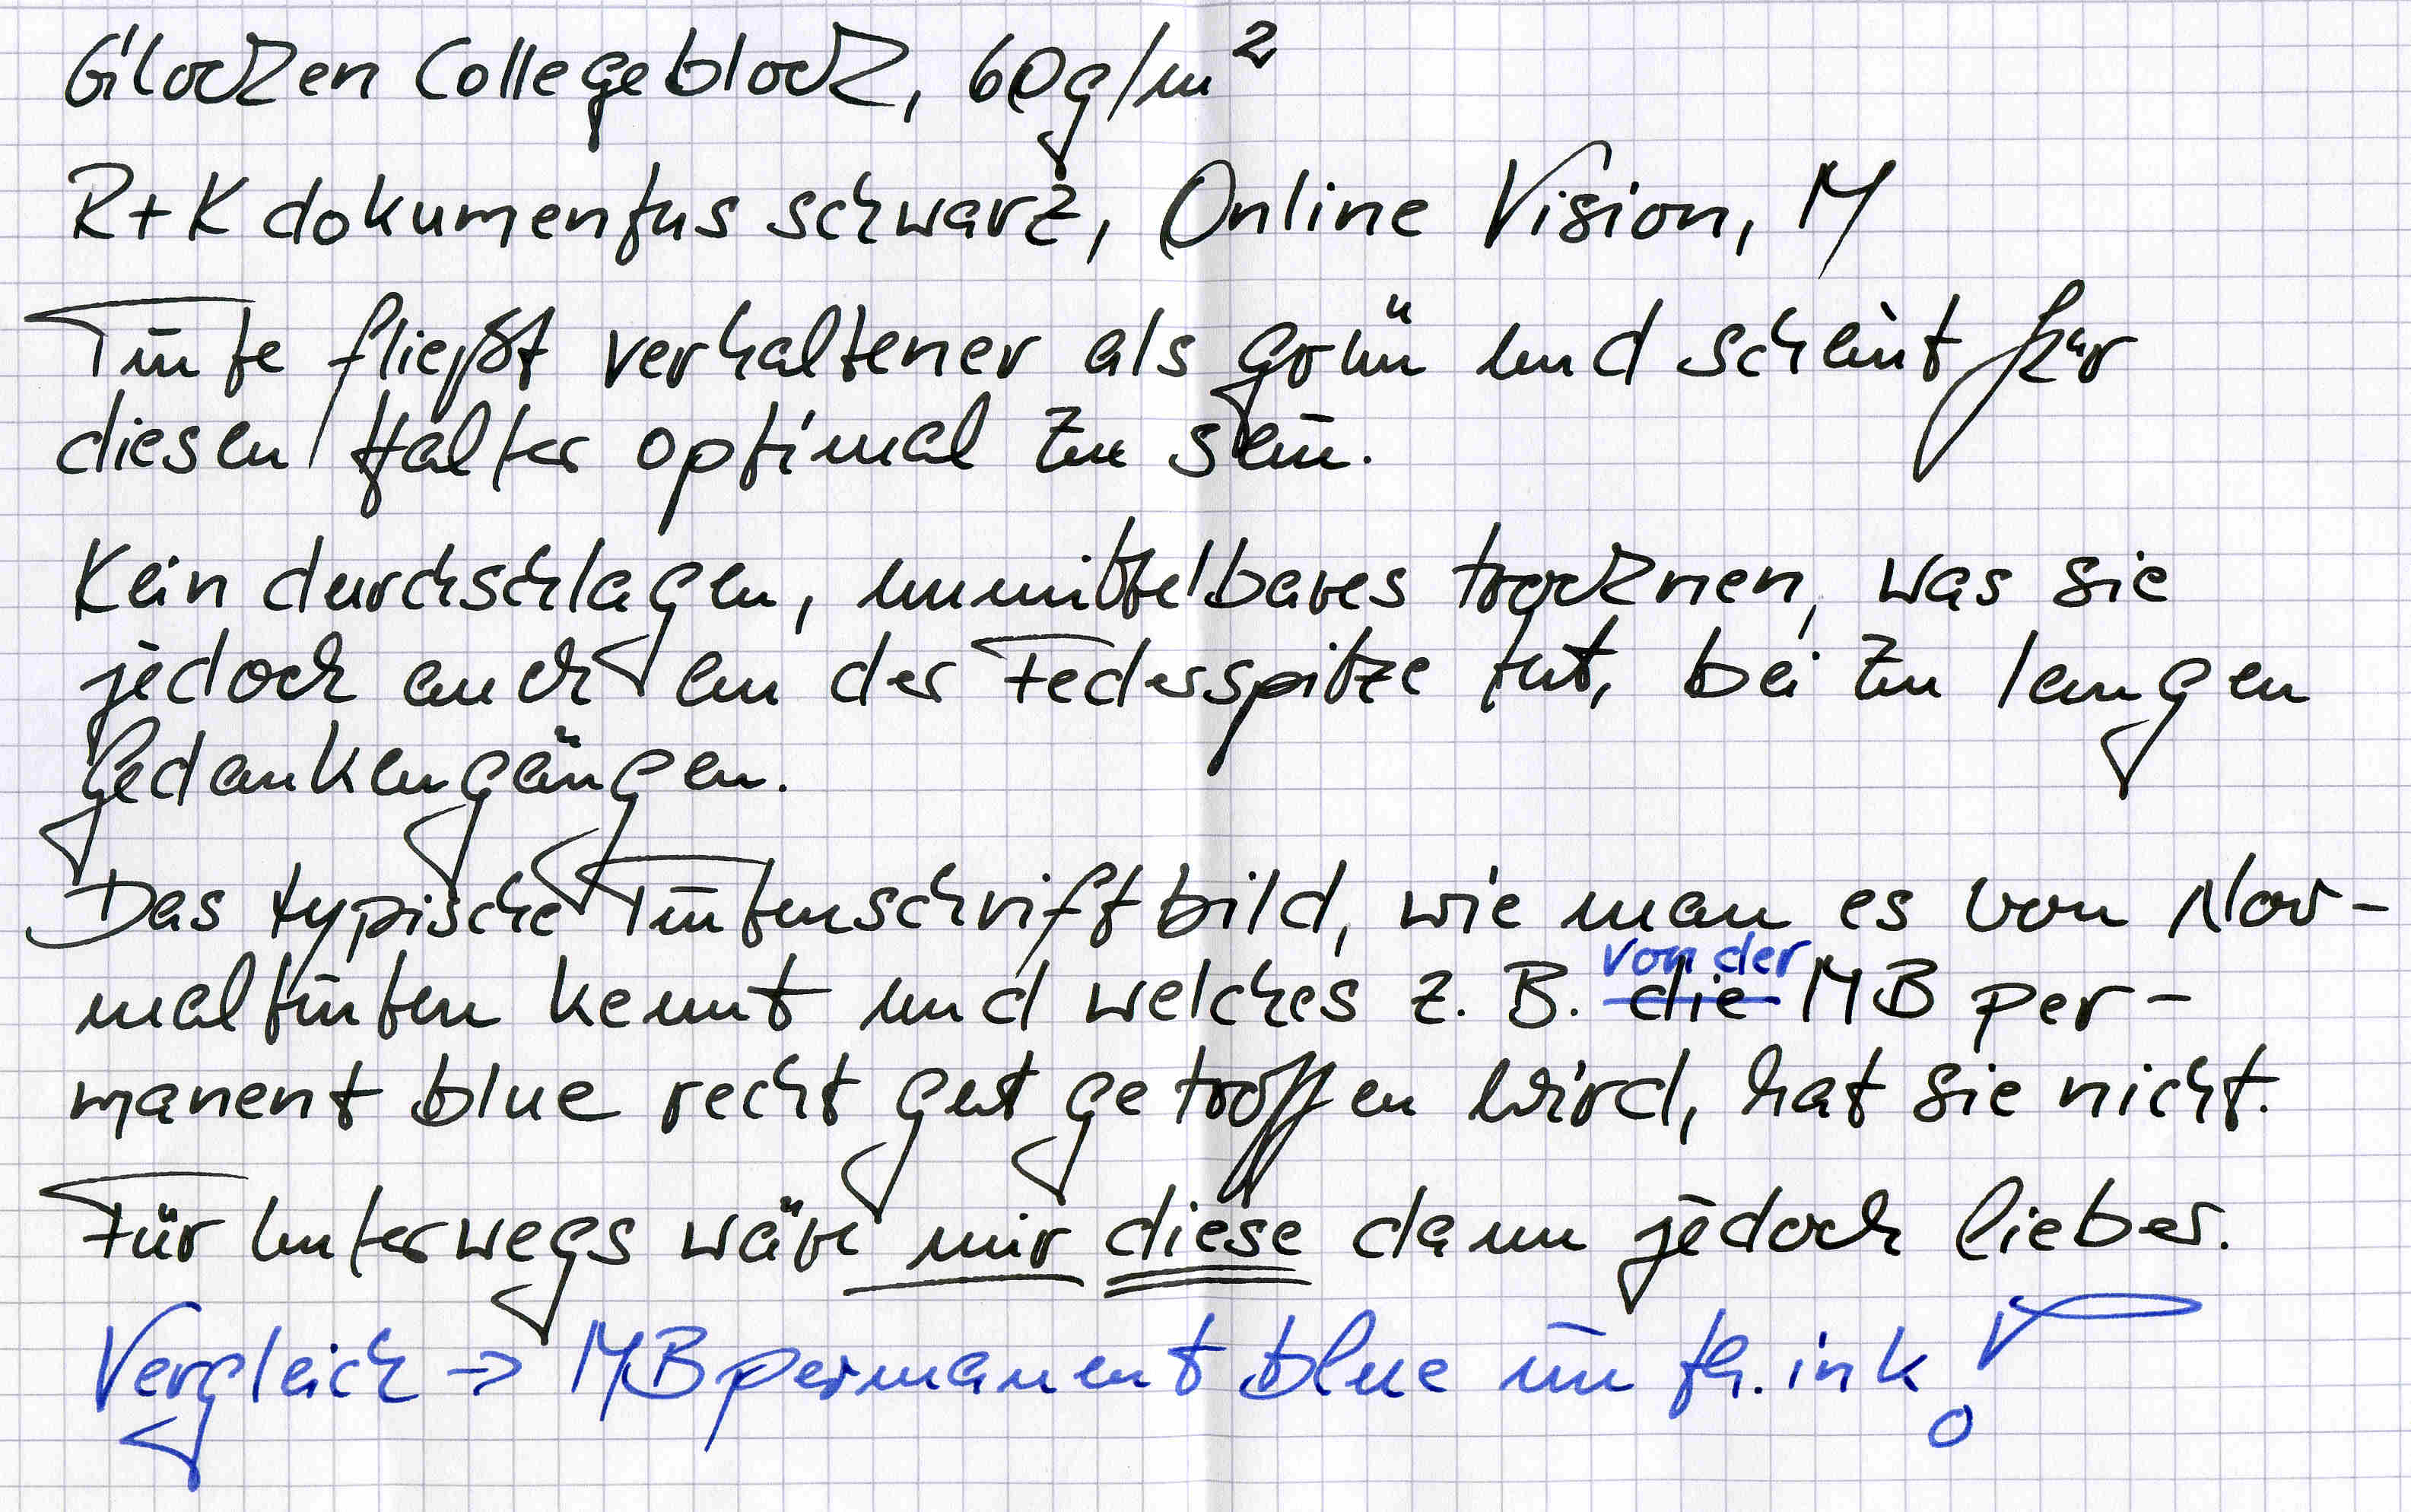 Glocken Collegeblock, 60g/m²
R+K dokumentus schwarz, Online Vision, M
Tinte fließt verhaltener als grün und scheint für
diesen Halter optimal zu sein.
Kein durchschlagen, unmittelbares trocknen, was sie
jedoch auch an der Federspitze tut, bei zu langen
Gedankengängen.
Das typische Tintenschriftbild, wie man es von Nor-
von der
maltinten kennt und welches z. B. die MB per-
manent blue recht gut getroffen wird, hat sie nicht.
Für Unterwegs wäre mir diese dann jedoch lieber.
Vergleich → MB permanent blue im fh.ink!